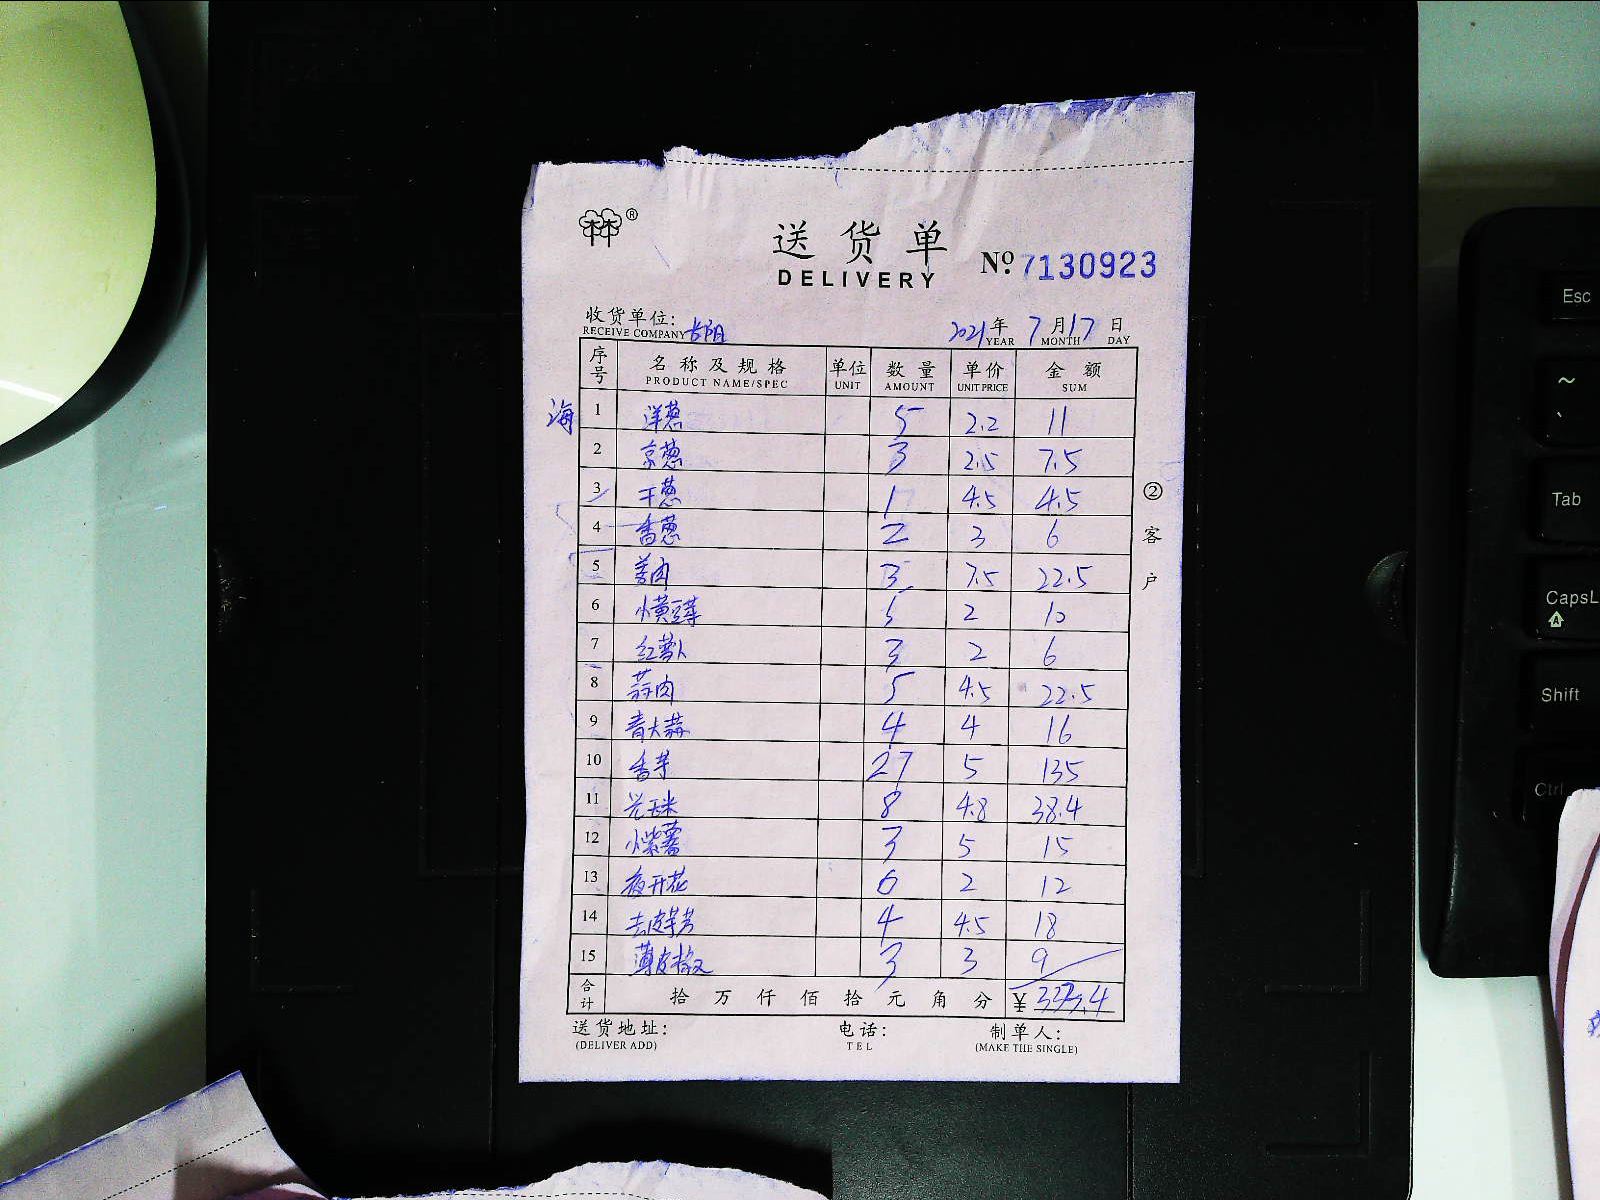 林®
送货单
DELIVERY
Nº 7130923
收货单位: 长阳
RECEIVE COMPANY
2021年 7月17日
YEAR MONTH DAY
序号 名称及规格 单位 数量 单价 金额
PRODUCT NAME/SPEC UNIT AMOUNT UNIT PRICE SUM
海
1 洋葱 5 2.2 11
2 京葱 3 2.5 7.5
3 干葱 1 4.5 4.5
4 香葱 2 3 6
5 姜肉 3 7.5 22.5
6 小黄豆芽 5 2 10
7 红萝卜 3 2 6
8 蒜肉 5 4.5 22.5
9 青大蒜 4 4 16
10 香芋 27 5 135
11 光玉米 8 4.8 38.4
12 小紫薯 3 5 15
13 夜开花 6 2 12
14 去皮芋艿 4 4.5 18
15 薄皮椒 3 3 9
合计 拾万仟佰拾元角分 ¥ 333.4
②客户
送货地址: 电话: 制单人:
(DELIVER ADD) TEL (MAKE THE SINGLE)
Esc
~
`
Tab
CapsL
A
Shift
Ctrl